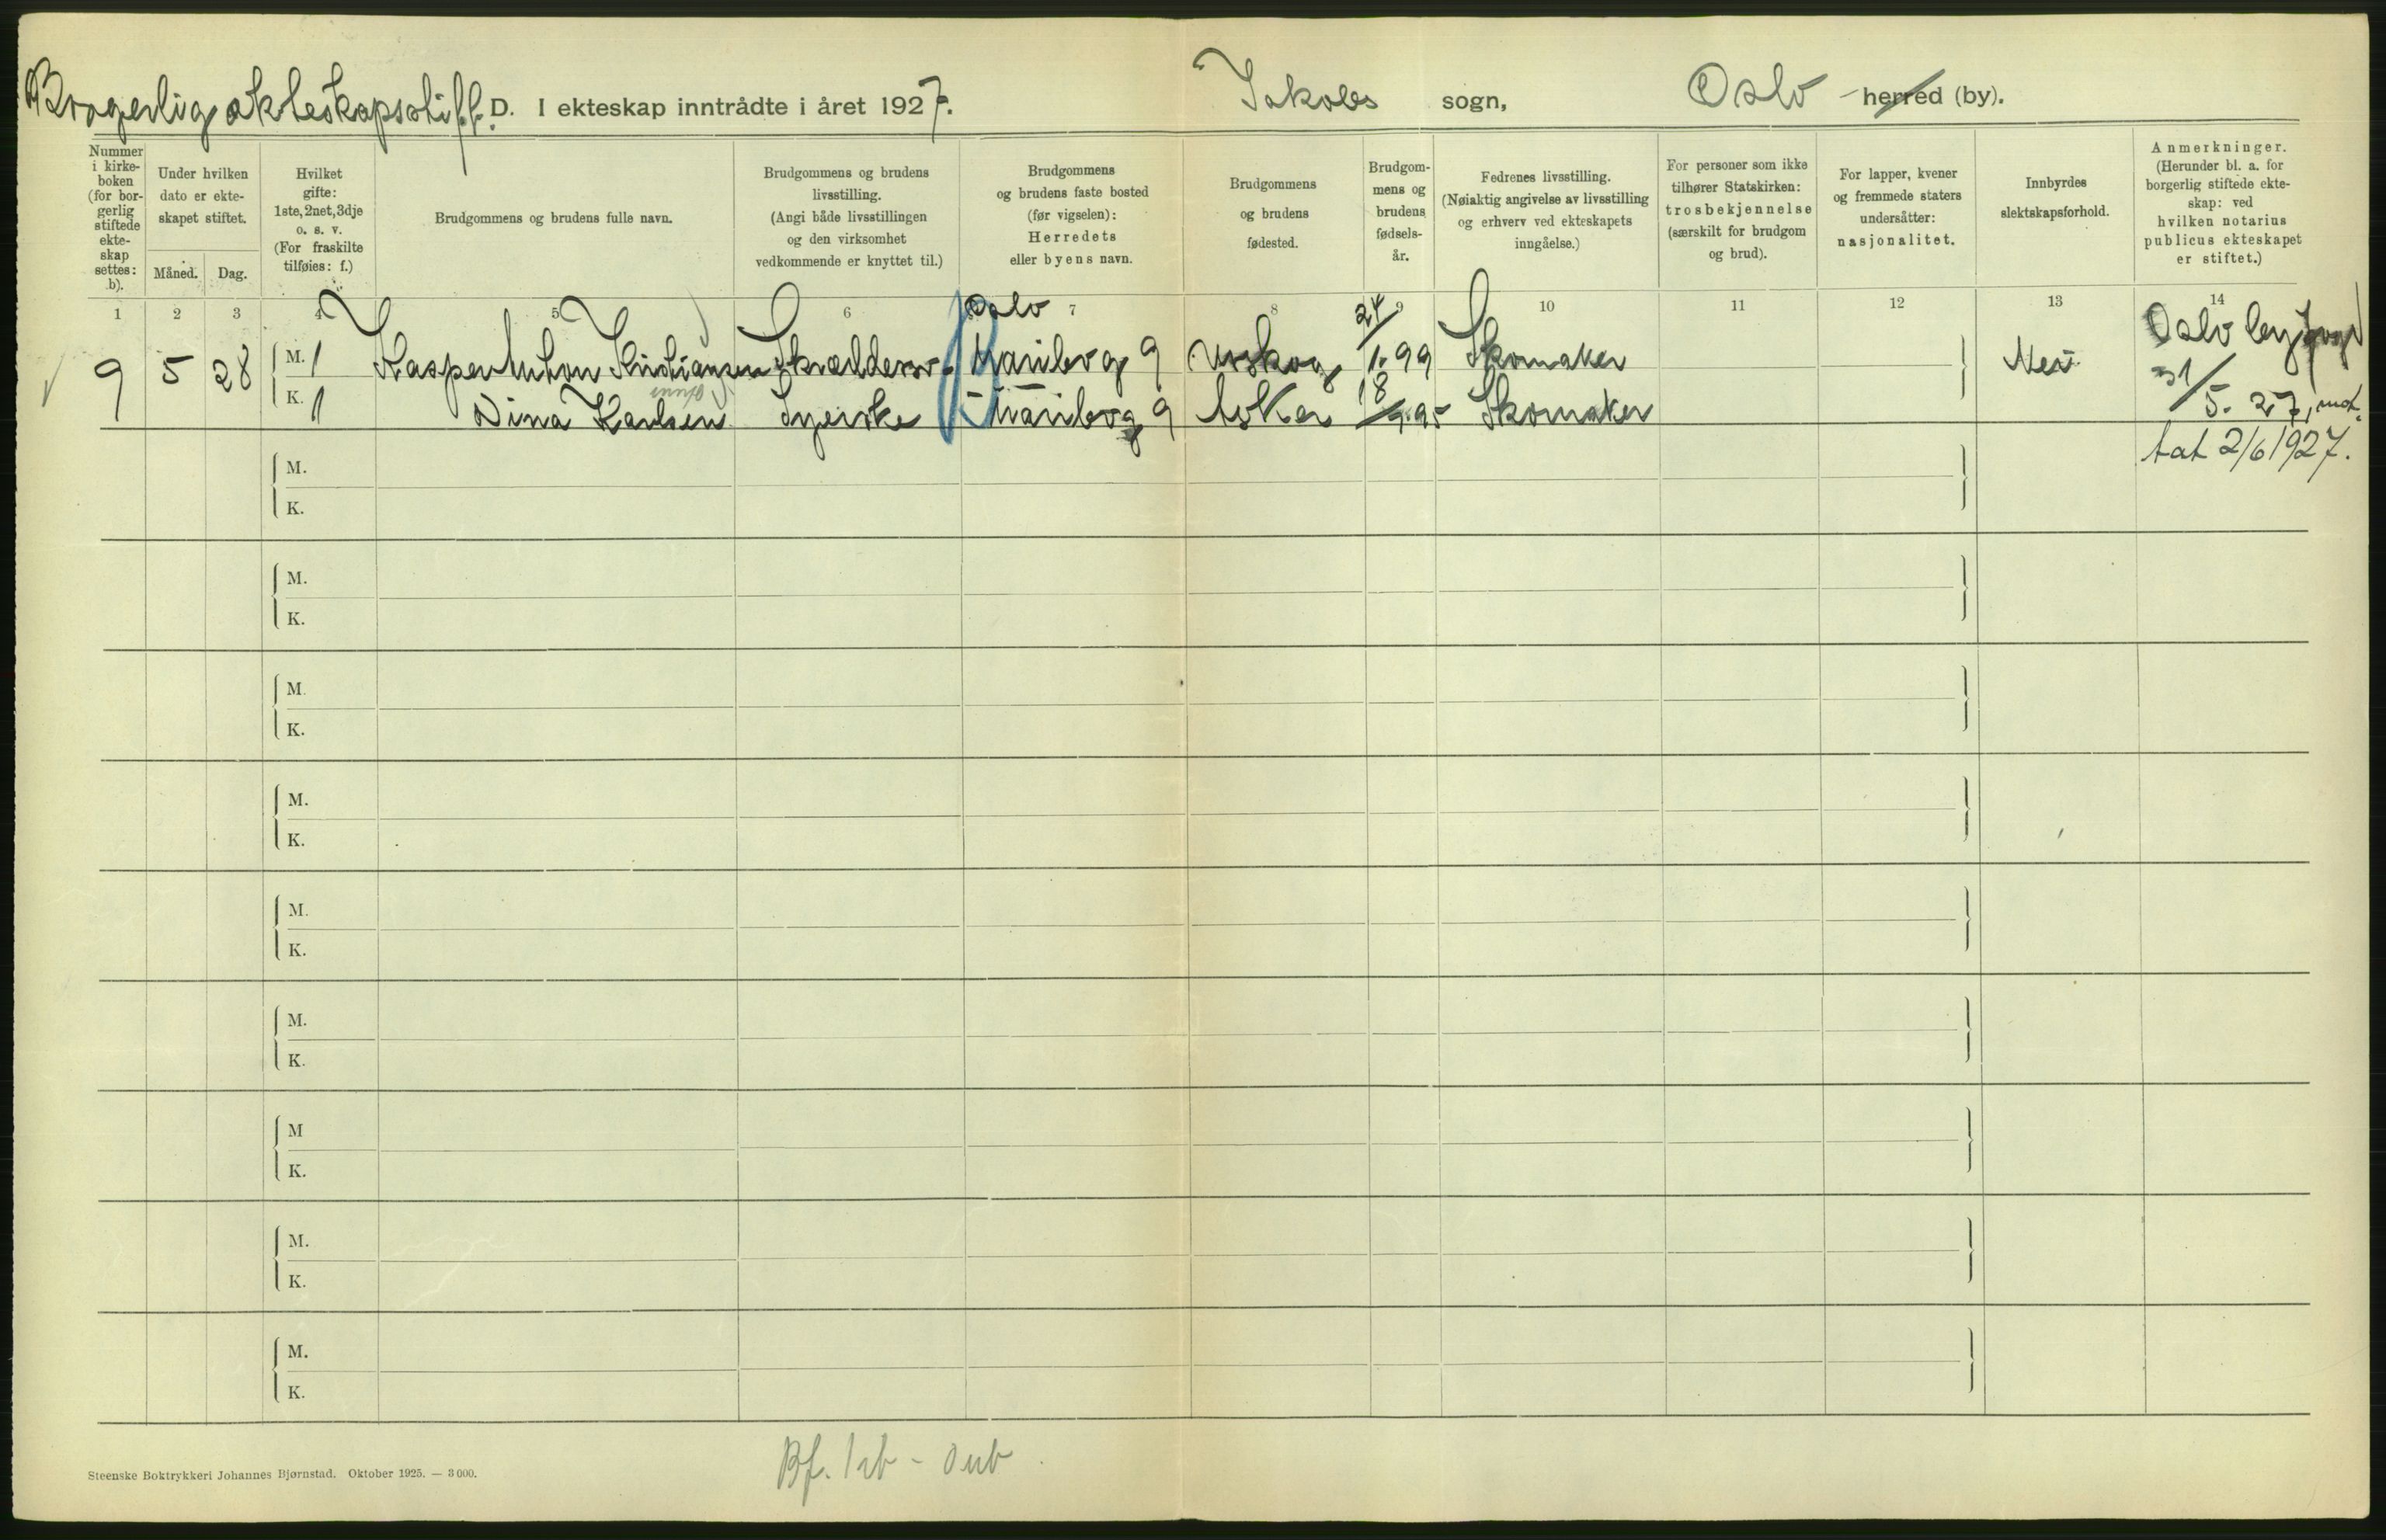 Borgerlig ekteskapsstift. D. I ekteskap inntrådte i året 1927. Jakobs sogn, Oslo herred (by).
Nummer i kirke-boken (for bor-gerlig stiftede ekte-skap settes: b).
Under hvilken dato er ekte-skapet stiftet.
Måned. Dag.
Hvilket gifte: 1ste, 2net, 3dje o. s. v. (For fraskilte tilføies: f.)
Brudgommens og brudens fulle navn.
Brudgommens og brudens livsstilling. (Angi både livsstillingen og den virksomhet vedkommende er knyttet til.)
Brudgommens og brudens faste bosted (før vigselen): Herredets eller byens navn.
Brudgommens og brudens fødested.
Brudgom-mens og brudens fødsels-år.
Fedrenes livsstilling. (Nøiaktig angivelse av livsstilling og erhverv ved ekteskapets inngåelse.)
For personer som ikke tilhører Statskirken: trosbekjennelse (særskilt for brudgom og brud).
For lapper, kvener og fremmede staters undersåtter: nasjonalitet.
Innbyrdes slektskapsforhold.
Anmerkninger. (Herunder bl. a. for borgerlig stiftede ekte-skap: ved hvilken notarius publicus ekteskapet er stiftet.)
1 2 3 4 5 6 7 8 9 10 11 12 13 14
Oslo
9 5 28 M. 1 Kasper Anton Kristiansen Skreddersv. Maribog 9 Urskog 24/1.99 Skomaker Nei Oslo byfogd
K. 1 Dina Karlsen Syerske Maribog 9 Asker 18/9.95 Skomaker 31/5. 27, mot.
tat 2/6 1927.
M.
K.
M.
K.
M.
K.
M.
K.
M.
K.
M.
K.
M
K.
M.
K.
M.
K.
Steenske Boktrykkeri Johannes Bjørnstad. Oktober 1925. — 3 000.